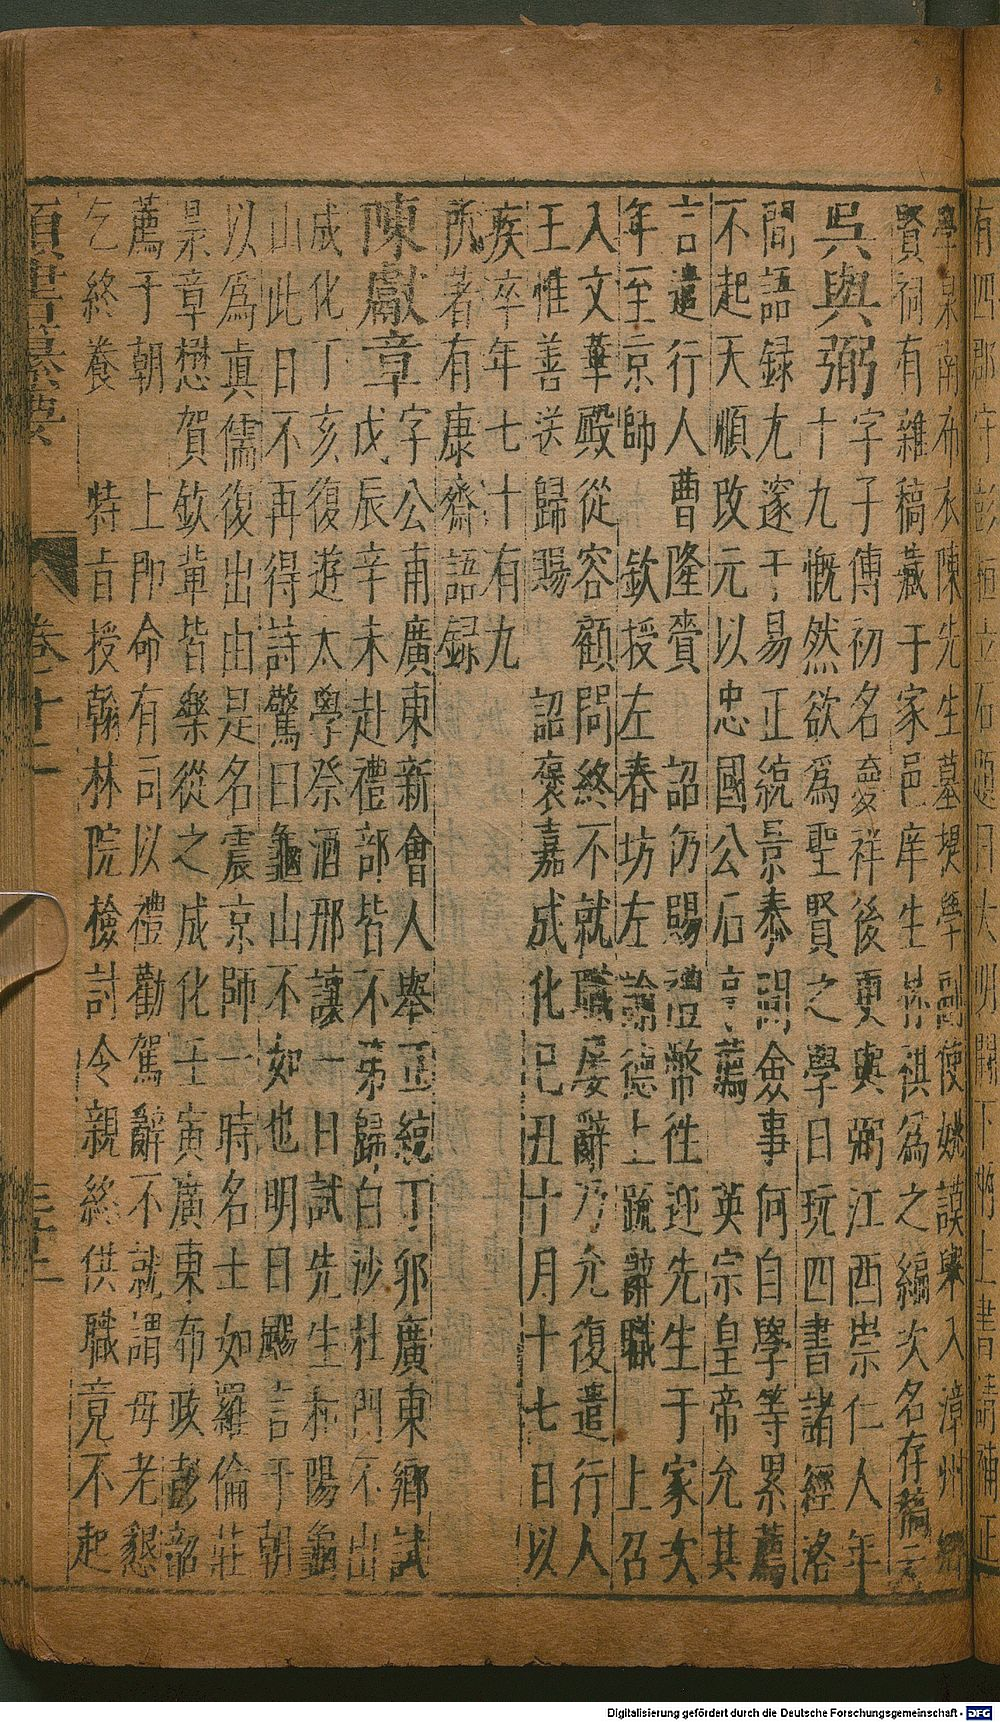 有四郡守彭桓立石題曰大明闕下兩上書請補正
學泉南布衣陳先生墓提學副使姚謨舉入漳州鄉
賢祠有雜稿藏于家邑庠生林祺爲之編次名存稿云
吳與弼字子傅初名夢祥後更與弼江西崇仁人年
十九慨然欲爲聖賢之學日玩四書諸經洛
閩語録尢邃于易正統景泰間僉事何自學等累薦
不起天順改元以忠國公石亨薦 英宗皇帝允其
言遣行人曹隆賫 詔仍賜禮幣徃迎先生于家次
年至京師 欽授左春坊左諭德上疏辭職 上召
入文華殿從容顧問終不就職屡辭乃允復遣行人
王惟善送歸賜 詔褒嘉成化己丑十月十七日以
疾卒年七十有九
所著有康齋語録
陳獻章字公甫廣東新會人舉正統丁卯廣東鄉試
戊辰辛未赴禮部皆不第歸白沙杜門不出
成化丁亥復遊太學祭酒邢讓一日試先生和陽龜
山此日不再得詩驚曰龜山不如也明日颺言于朝
以爲眞儒復出由是名震京師一時名士如羅倫莊
杲章懋賀欽輩皆樂從之成化壬寅廣東布政彭韶
薦于朝 上即命有司以禮勸駕辭不就謂毋老懇
乞終養 特㫖授翰林院檢討令親終供職竟不起
類書纂要 卷十二
Digitalisierung gefördert durch die Deutsche Forschungsgemeinschaft - DFG